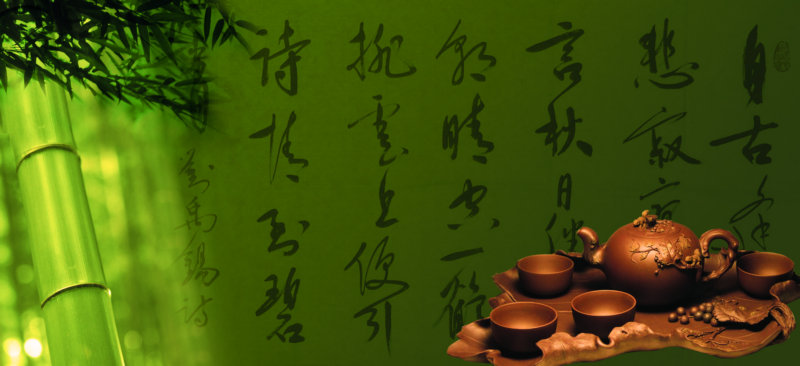 自古逢
悲寂寥
言秋日勝
朝晴空一鶴
排雲上便引
诗情到碧
劉禹錫诗